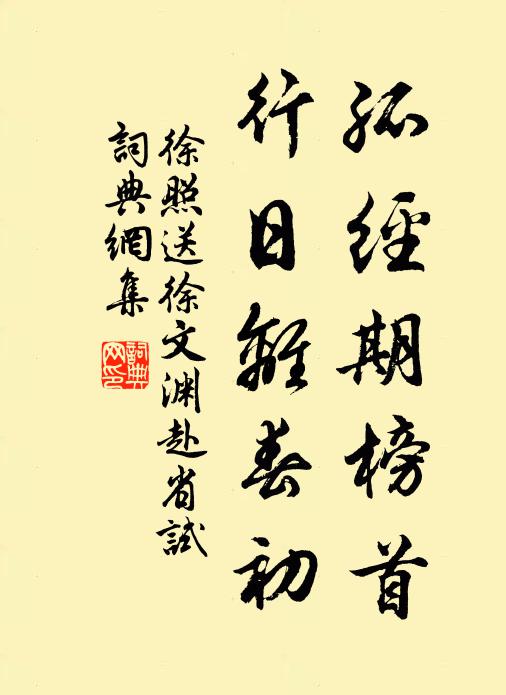 孤經期榜首
行日難春初
徐照送徐文渊赴省試
詞典網集
詞典
网印